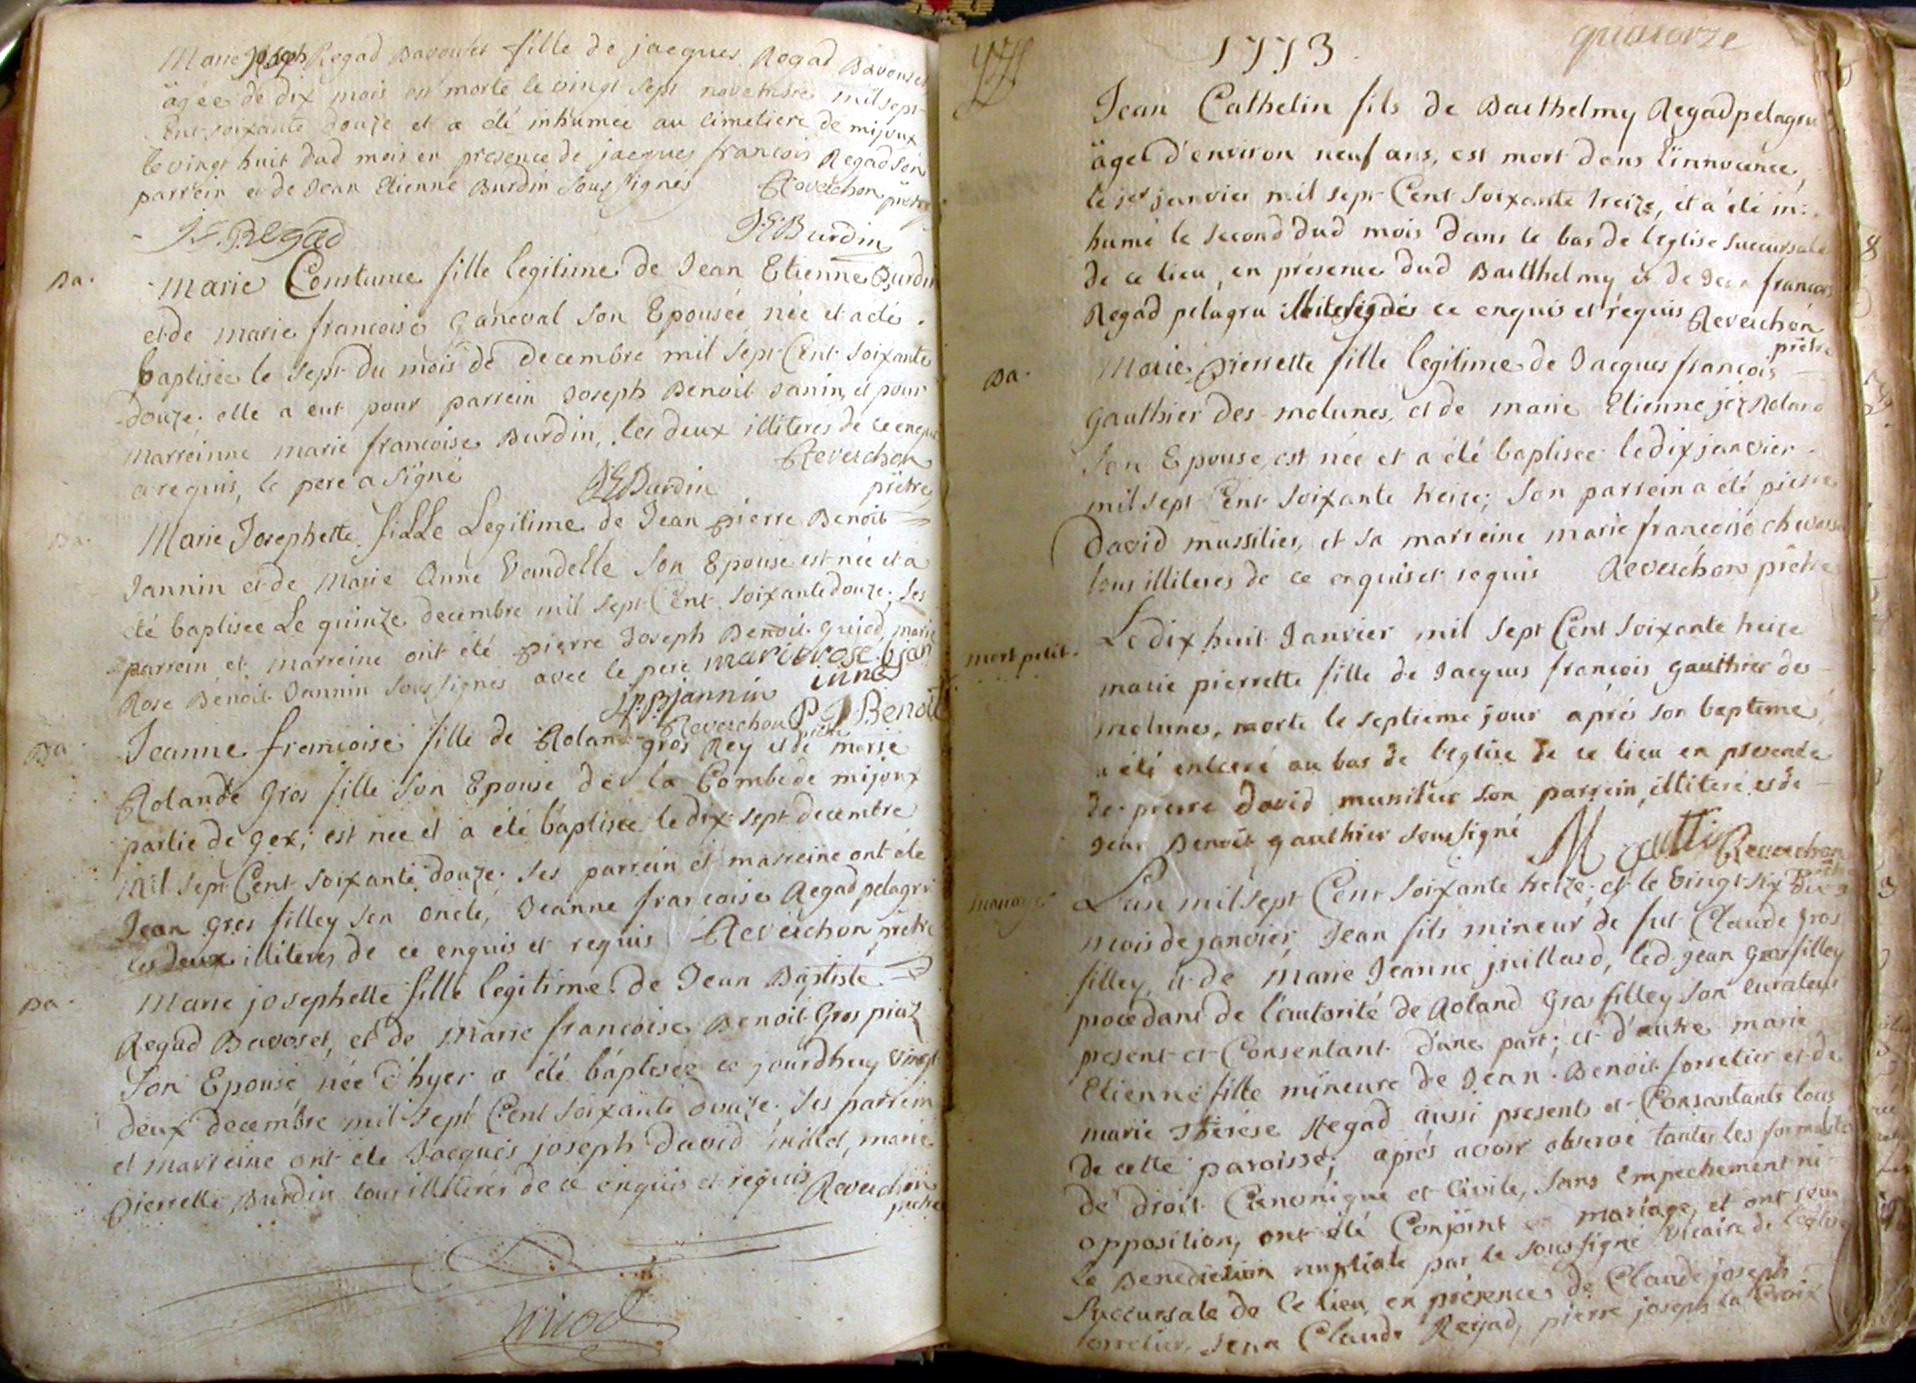 Marie joseph Regad Bavouset fille de jacques Regad Bavouset
âgée de dix mois est morte le vingt sept novembre mil sept
Cent soixante douze et a été inhumée au cimetiere de mijoux
le vingt huit dud mois en presence de jacques françois Regad son
parrein et de Jean Etienne Burdin sous signés Reverchon prêtre
J.F. Regad J.E. Burdin
Ba. Marie Constance fille legitime de Jean Etienne Burdin
et de marie françoise ganeval son Epousée née et a été
baptisée le sept du mois de decembre mil sept Cent soixante
douze. elle a eut pour parrein Joseph Benoit Janin, et pour
marreinne marie françoise Burdin, les deux illiteres de ce enquis
et requis, le pere a signé Reverchon
J.E. Burdin prêtre
Ba. Marie Josephette fille Legitime de Jean pierre Benoit
Jannin et de Marie Anne Vandelle son Epouse est née et a
été baptisee Le quinze decembre mil sept Cent soixante douze, ses
parrein et marreine ont été pierre Joseph Benoit guiod, marie
Rose Benoit Jannin sous signés avec le pere marie rose bjan
J.P.B. jannin
Reverchon prêtre P J Benoit
Ba. Jeanne françoise fille de Roland gros Rey et de marie
Rolande gros fille son Epouse de la Combe de mijoux
partie de gex, est née et a été baptisée le dix sept decembre
mil sept Cent soixante douze. ses parrein et marreine ont été
Jean gros filley son oncle, Jeanne françoise Regad pelagru
les deux illiteres de ce enquis et requis Reverchon prêtre
Ba. Marie josephette fille legitime de Jean Baptiste
Regad Bavoset, et de Marie françoise Benoit Gros piaz
son Epouse née d'hyer a été baptisée ce jourdhuy vingt
deux decembre mil sept Cent soixante douze. ses parrein
et marreine ont été Jacques joseph david millet, marie
pierrette Burdin tous illiterés de ce enquis et requis Reverchon
prêtre
nicod
1773. quatorze
Jean Cathelin fils de Barthelmy Regad pelagru
âgé d'environ neuf ans, est mort dans l'innocence,
le 1er janvier mil sept Cent soixante treize, et a été in-
humé le second dud mois dans le bas de l'eglise succursale
de ce lieu, en présence dud Barthelmy et de Jean françois
Regad pelagru illiterés de ce enquis et requis Reverchon
prêtre
Ba. Marie pierrette fille legitime de Jacques françois
gauthier des molunes, et de marie Etienne joz Roland
son Epouse, est née et a été baptisée le dix janvier
mil sept Cent soixante treize; son parrein a été pierre
david mussilier, et sa marreine marie françoise
tous illiteres de ce enquis et requis Reverchon prêtre
mort petit. Le dix huit Janvier mil sept Cent soixante treize
marie pierrette fille de Jacques françois gauthier des
molunes, morte le septieme jour aprés son bapteme,
a été enterré au bas de l'eglise de ce lieu en presence
de pierre david munilier son parrein, illiteré, et de
Jean Benoît gauthier sousigné Reverchon
mariage L'an mil sept Cent soixante treize, et le vingt six du
mois de janvier, Jean fils mineur de fut Claude gros
filley, et de Marie Jeanne juillard, led. jean gros filley
procedant de l'autorité de Roland Gros filley son curateur
present et Consentant d'une part; et d'autre marie
Etienne fille mineure de Jean Benoit forretier et de
marie Thérése Regad aussi presents et Consantants tous
de cette paroisse; aprés avoir observé toutes les formalités
de droit Canonique et Civile, sans Empechement ni
opposition, ont été Conjoint en mariage, et ont reçu
la Benediction nuptiale par le soussigné vicaire de l'eglise
succursale de Ce lieu en présence de Claude joseph
forretier, Jean Claude Regad, pierre joseph la Croix